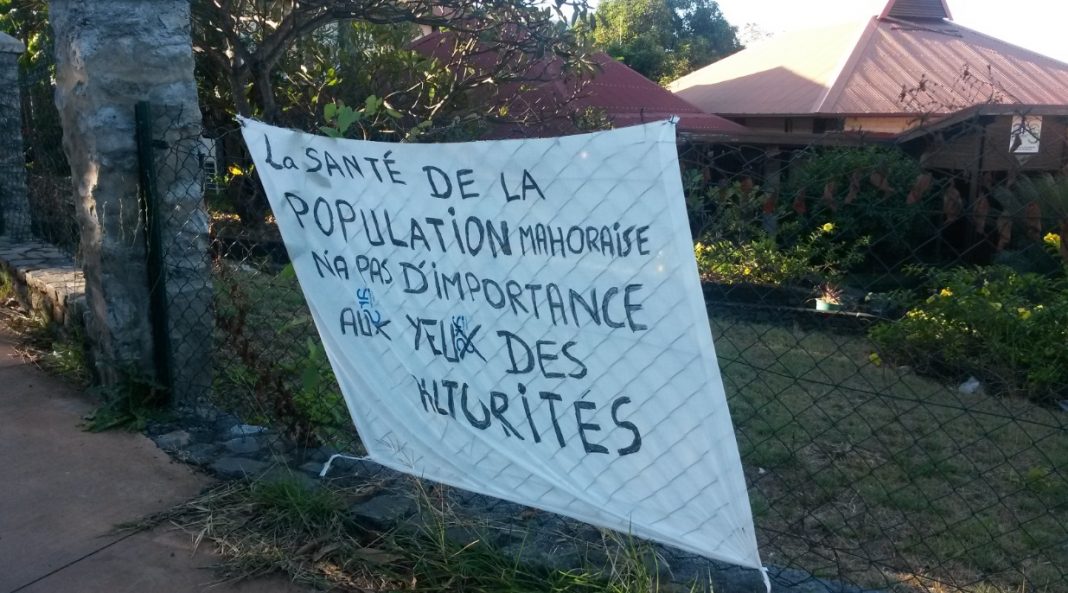 La SANTÉ DE LA
POPULATION MAHORAISE
N'A PAS D'IMPORTANCE
AUX YEUX DES
AUTORITÉS